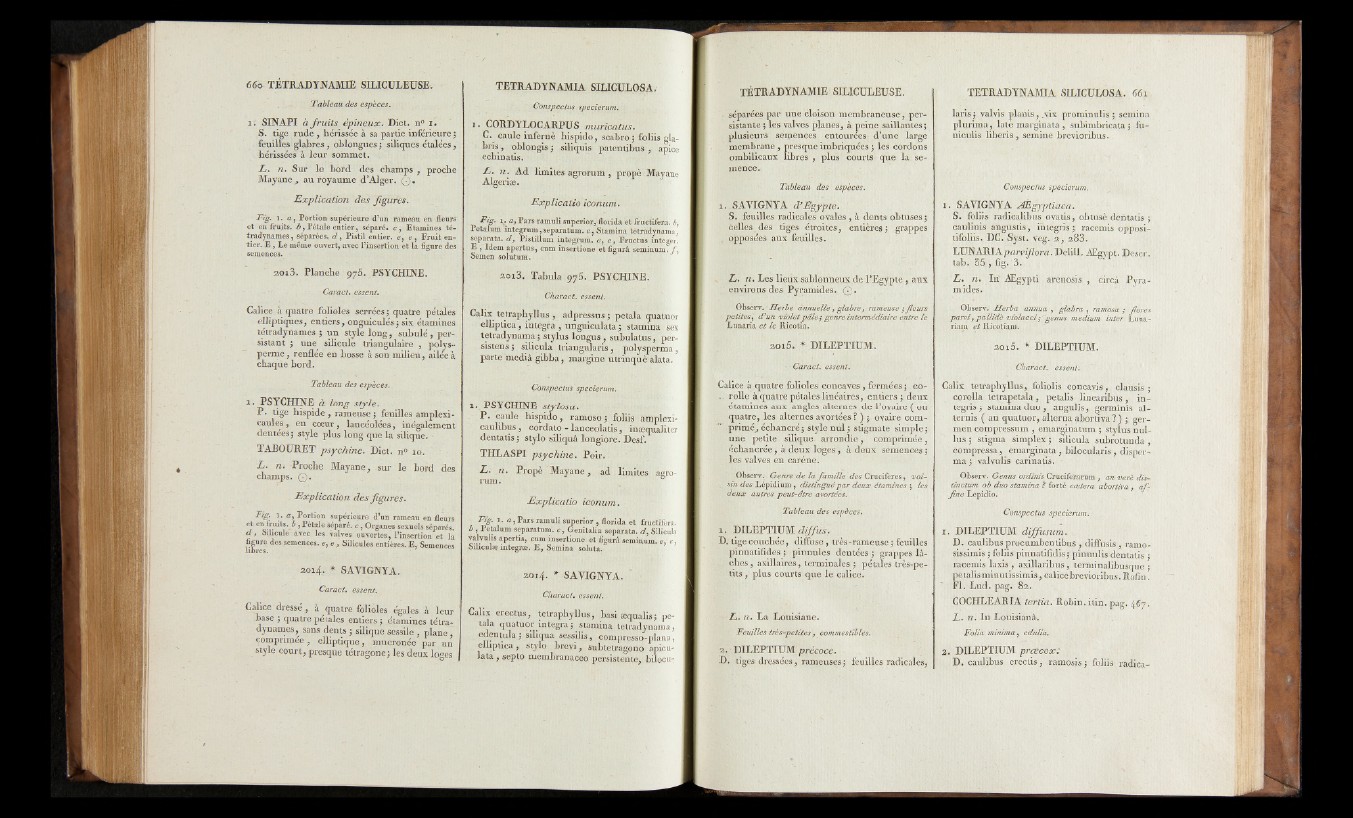 660 TÉTRADYNAMIE SILICULEUSE.
Tableau des espèces.
1. SINAPI à fruits épineux. Dict. nº 1.
S. tige rude, hérissée à sa partie inférieure;
feuilles glabres, oblongues; siliques étalées,
hérissées à leur sommet.
L. n. Sur le bord des champs, proche
Mayane, au royaume d'Alger. ⊙.
Explication des figures.
Fig. 1. a, Portion supérieure d'un rameau en fleurs
et en fruits. b, Pétale entier, séparé. c, Etamines té-
tradynames, séparées. d, Pistil entier. e, e, Fruit en-
tier. E, Le même ouvert, avec l'insertion et la figure des
semences.
2013. Planche 975. PSYCHINE.
Caract. essent.
Calice à quatre folioles serrées; quatre pétales
elliptiques, entiers, onguiculés; six étamines
tétradynames; un style long, subulé, per-
sistant; une silicule triangulaire, polys-
perme, renflée en bosse à son milieu, ailée à
chaque bord.
Tableau des espèces.
1. PSYCHINE à long style.
P. tige hispide, rameuse; feuilles amplexi-
caules, en cœur, lancéolées, inégalement
dentées; style plus long que la silique.
TABOURET psychine. Dict. nº 10.
L. n. Proche Mayane, sur le bord des
champs. ⊙.
Explication des figures.
Fig. 1. a, Portion supérieure d'un rameau en fleurs
et en fruits. b, Pétale séparé. c, Organes sexuels séparés.
d, Silicule avec les valves ouvertes, l'insertion et la
figure des semences. e, e, Silicules entières. E, Semences
libres.
2014. * SAVIGNYA.
Caract. essent.
Calice dressé, à quatre folioles égales à leur
base; quatre pétales entiers; étamines tétra-
dynames, sans dents; silique sessile, plane,
comprimée, elliptique, mucronée par un
style court, presque tétragone; les deux loges
TETRADYNAMIA SILICULOSA.
Conspectus specierum.
1. CORDYLOCARPUS muricatus.
C. caule infernè hispido, scabro; foliis gla-
bris, oblongis; siliquis patentibus, apice
echinatis.
L. n. Ad limites agrorum, propè Mayane
Algeriæ.
Explicatio iconum.
Fig. 1. a, Pars ramuli superior, florida et fructifera. b,
Petalum integrum, separatum. c, Stamina tetradynama,
separata. d, Pistillum integrum. e, e, Fructus integer.
E, Idem apertus, cum insertione et figurâ seminum. f,
Semen solutum.
2013. Tabula 975. PSYCHINE.
Charact. essent.
Calix tetraphyllus, adpressus; petala quatuor
elliptica, integra, unguiculata; stamina sex
tetradynama; stylus longus, subulatus, per-
sistens; silicula triangularis, polysperma,
parte mediâ gibba, margine utrinquè alata.
Conspectus specierum.
1. PSYCHINE stylosa.
P. caule hispido, ramoso; foliis amplexi-
caulibus, cordato-lanceolatis, inæqualiter
dentatis; stylo siliquâ longiore. Desf.
THLASPI psychine. Poir.
L. n. Propè Mayane, ad limites agro-
rum.
Explicatio iconum.
Fig. 1. a, Pars ramuli superior, florida et fructifera.
b, Petalum separatum. c, Genitalia separata. d, Silicula
valvulis apertis, cum insertione et figurâ seminum. e, e,
Siliculæ integræ. E, Semina soluta.
2014. * SAVIGNYA.
Charact. essent.
Calix erectus, tetraphyllus, basi æqualis; pe-
tala quatuor integra; stamina tetradynama,
edentula; siliqua sessilis, compresso-plana,
elliptica, stylo brevi, subtetragono apicu-
lata, septo membranaceo persistente, bilocu-
TÉTRADYNAMIE SILICULEUSE.
séparées par une cloison membraneuse, per-
sistante; les valves planes, à peine saillantes;
plusieurs semences entourées d'une large
membrane, presque imbriquées; les cordons
ombilicaux libres, plus courts que la se-
mence.
Tableau des espèces.
1. SAVIGNYA d'Egypte.
S. feuilles radicales ovales, à dents obtuses;
celles des tiges étroites, entières; grappes
opposées aux feuilles.
L. n. Les lieux sablonneux de l'Egypte, aux
environs des Pyramides. ⊙.
Observ. Herbe annuelle, glabre, rameuse; fleurs
petites, d'un violet pâle; genre intermédiaire entre le
Lunaria et le Ricotia.
2015. * DILEPTIUM.
Caract. essent.
Calice à quatre folioles concaves, fermées; co-
rolle à quatre pétales linéaires, entiers; deux
étamines aux angles alternes de l'ovaire (ou
quatre, les alternes avortées?); ovaire com-
primé, échancré; style nul; stigmate simple;
une petite silique arrondie, comprimée,
échancrée, à deux loges, à deux semences;
les valves en carène.
Observ. Genre de la famille des Crucifères, voi-
sin des Lepidium, distingué par deux étamines; les
deux autres peut-être avortées.
Tableau des espèces.
1. DILEPTIUM diffus.
D. tige couchée, diffuse, très-rameuse; feuilles
pinnatifides; pinnules dentées; grappes lâ-
ches, axillaires, terminales; pétales très-pe-
tits, plus courts que le calice.
L. n. La Louisiane.
Feuilles très-petites, commestibles.
2. DILEPTIUM précoce.
D. tiges dressées, rameuses; feuilles radicales,
TETRADYNAMIA SILICULOSA. 661
laris; valvis planis, vix prominulis; semina
plurima, late marginata, subimbricata; fu-
niculis liberis, semine brevioribus.
Conspectus specierum.
1. SAVIGNYA Ægyptiaca.
S. foliis radicalibus ovatis, obtusè dentatis;
caulinis angustis, integris; racemis oppositi-
tifoliis. DC. Syst. veg. 2, 283.
LUNARIA parviflora. Delill. Ægypt. Descr.
tab. 35, fig. 3.
L. n. In Ægypti arenosis, circà Pyra-
mides.
Observ. Herba annua, glabra, ramosa; flores
parvi, pallidè violacei; genus medium inter Luna-
riam et Ricotiam.
2015. * DILEPTIUM.
Charact. essent.
Calix tetraphyllus, foliolis concavis, clausis;
corolla tetrapetala, petalis linearibus, in-
tegris; stamina duo, angulis, germinis al-
ternis (an quatuor, alterna abortiva?); ger-
men compressum, emarginatum; stylus nul-
lus; stigma simplex; silicula subrotunda,
compressa, emarginata, bilocularis, disper-
ma; valvulis carinatis.
Observ. Genus ordinis Cruciferarum, an verè dis-
tinctum ob duo stamina? fortè cætera abortiva, af-
fine Lepidio.
Conspectus specierum.
1. DILEPTIUM diffusum.
D. caulibus procumbentibus, diffusis, ramo-
sissimis; foliis pinnatifidis; pinnulis dentatis;
racemis laxis, axillaribus, terminalibusque;
petalis minutissimis, calice brevioribus. Rafin.
Fl. Lud. pag. 82.
COCHLEARIA tertia. Robin. itin. pag. 467.
L. n. In Louisianâ.
Folia minima, edulia.
2. DILEPTIUM præcox.
D. caulibus erectis, ramosis; foliis radica-